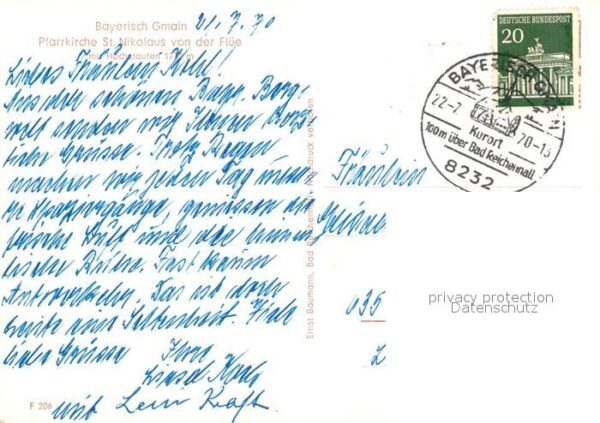 Bayerisch Gmain
21.7.70
Pfarrkirche St. Nikolaus von der Flüe
mit Hochstaufen 1771 m
Liebes Fräulein
Aus der schönen Bayr. Berg-
welt senden wir Ihnen herz-
liche Grüsse. Trotz Regen
machen wir jeden Tag unse-
re Spaziergänge, geniessen die
frische Luft und die himm-
lische Ruhe. Fast kaum
Autoverkehr. Das ist doch
heute eine Seltenheit. Viele
liebe Grüsse Ihre
mit
F 206
Ernst Baumann, Bad Reichenhall, Nachdruck verboten
DEUTSCHE BUNDESPOST
20
BAYERISCH GMAIN
22.-7. 70-15
Kurort
100m über Bad Reichenhall
8232
Fräulein
035
privacy protection
Datenschutz